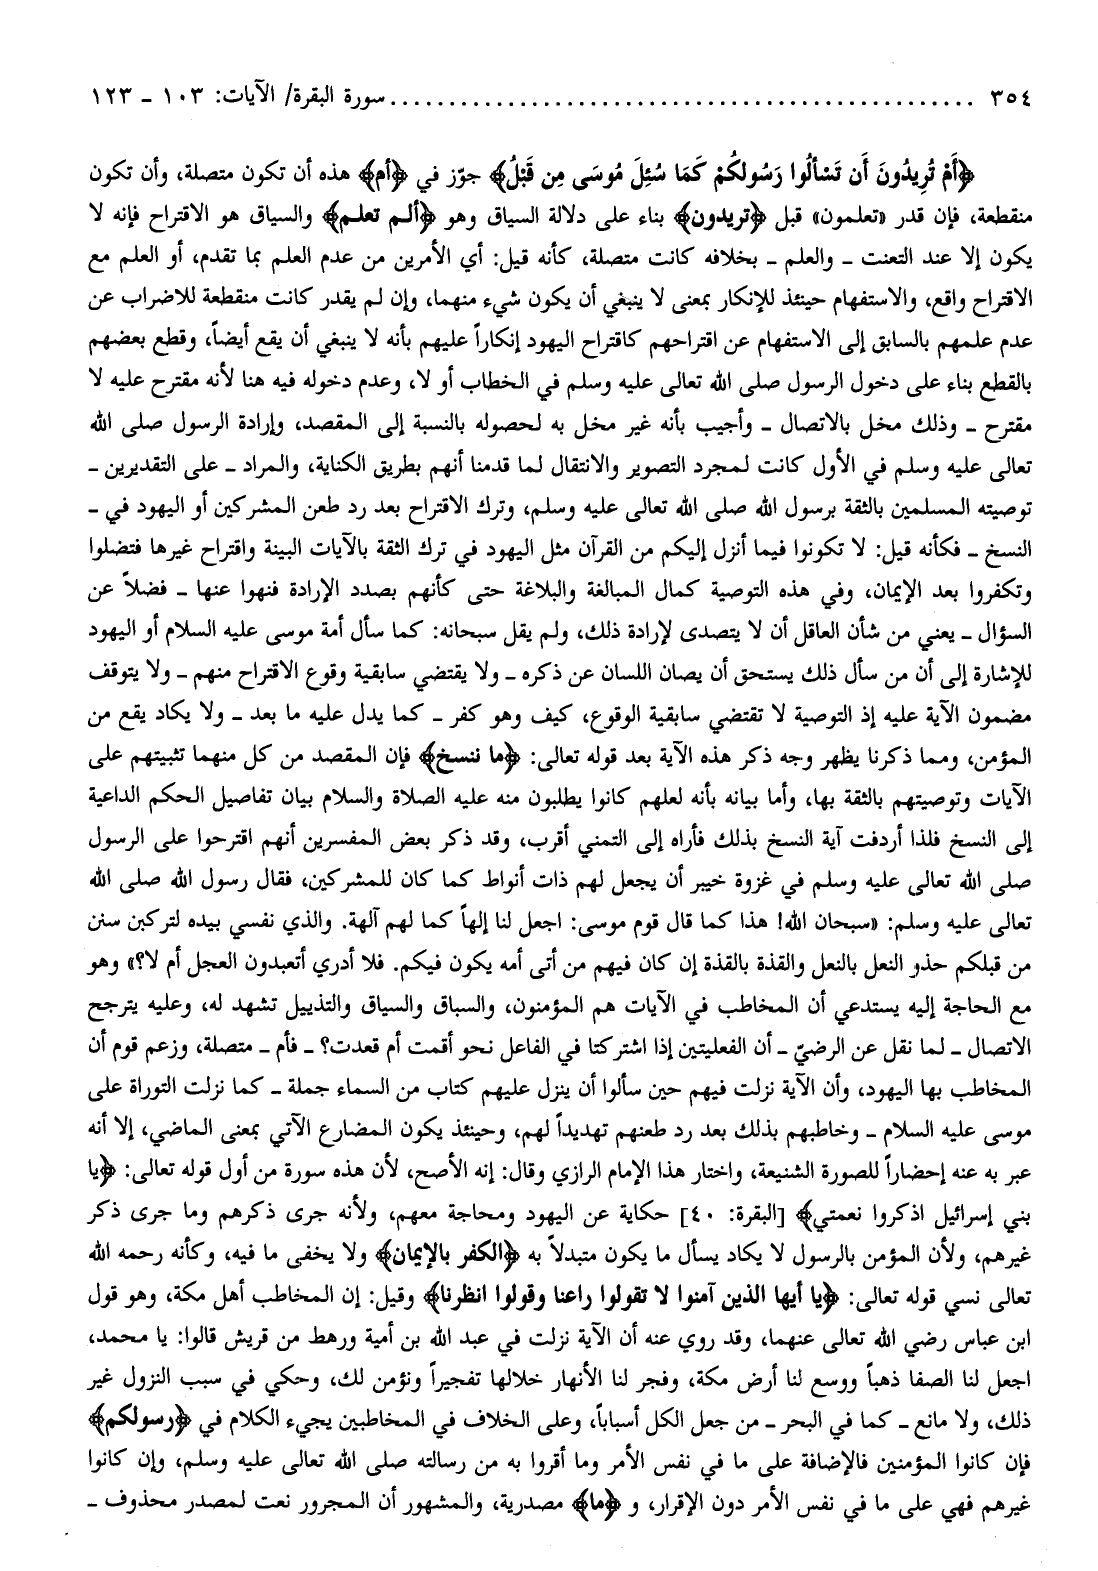 ٣٥٤ ........................................................ سورة البقرة/ الآيات: ١٠٣ ـ ١٢٣
﴿أَمْ تُرِيدُونَ أَن تَسْأَلُوا رَسُولَكُمْ كَمَا سُئِلَ مُوسَى مِن قَبْلُ﴾ جوّز في ﴿أم﴾ هذه أن تكون متصلة، وأن تكون
منقطعة، فإن قدر «تعلمون» قبل ﴿تريدون﴾ بناء على دلالة السياق وهو ﴿ألم تعلم﴾ والسياق هو الاقتراح فإنه لا
يكون إلا عند التعنت ـ والعلم ـ بخلافه كانت متصلة، كأنه قيل: أي الأمرين من عدم العلم بما تقدم، أو العلم مع
الاقتراح واقع، والاستفهام حينئذ للإنكار بمعنى لا ينبغي أن يكون شيء منهما، وإن لم يقدر كانت منقطعة للاضراب عن
عدم علمهم بالسابق إلى الاستفهام عن اقتراحهم كاقتراح اليهود إنكاراً عليهم بأنه لا ينبغي أن يقع أيضاً، وقطع بعضهم
بالقطع بناء على دخول الرسول صلى الله تعالى عليه وسلم في الخطاب أو لا، وعدم دخوله فيه هنا لأنه مقترح عليه لا
مقترح ـ وذلك مخل بالاتصال ـ وأجيب بأنه غير مخل به لحصوله بالنسبة إلى المقصد، وإرادة الرسول صلى الله
تعالى عليه وسلم في الأول كانت لمجرد التصوير والانتقال لما قدمنا أنهم بطريق الكناية، والمراد ـ على التقديرين ـ
توصيته المسلمين بالثقة برسول الله صلى الله تعالى عليه وسلم، وترك الاقتراح بعد رد طعن المشركين أو اليهود في ـ
النسخ ـ فكأنه قيل: لا تكونوا فيما أنزل إليكم من القرآن مثل اليهود في ترك الثقة بالآيات البينة واقتراح غيرها فتضلوا
وتكفروا بعد الإيمان، وفي هذه التوصية كمال المبالغة والبلاغة حتى كأنهم بصدد الإرادة فنهوا عنها ـ فضلاً عن
السؤال ـ يعني من شأن العاقل أن لا يتصدى لإرادة ذلك، ولم يقل سبحانه: كما سأل أمة موسى عليه السلام أو اليهود
للإشارة إلى أن من سأل ذلك يستحق أن يصان اللسان عن ذكره ـ ولا يقتضي سابقية وقوع الاقتراح منهم ـ ولا يتوقف
مضمون الآية عليه إذ التوصية لا تقتضي سابقية الوقوع، كيف وهو كفر ـ كما يدل عليه ما بعد ـ ولا يكاد يقع من
المؤمن، ومما ذكرنا يظهر وجه ذكر هذه الآية بعد قوله تعالى: ﴿ما ننسخ﴾ فإن المقصد من كل منهما تثبيتهم على
الآيات وتوصيتهم بالثقة بها، وأما بيانه بأنه لعلهم كانوا يطلبون منه عليه الصلاة والسلام بيان تفاصيل الحكم الداعية
إلى النسخ فلذا أردفت آية النسخ بذلك فأراه إلى التمني أقرب، وقد ذكر بعض المفسرين أنهم اقترحوا على الرسول
صلى الله تعالى عليه وسلم في غزوة خيبر أن يجعل لهم ذات أنواط كما كان للمشركين، فقال رسول الله صلى الله
تعالى عليه وسلم: «سبحان الله! هذا كما قال قوم موسى: اجعل لنا إلهاً كما لهم آلهة. والذي نفسي بيده لتركبن سنن
من قبلكم حذو النعل بالنعل والقذة بالقذة إن كان فيهم من أتى أمه يكون فيكم. فلا أدري أتعبدون العجل أم لا؟» وهو
مع الحاجة إليه يستدعي أن المخاطب في الآيات هم المؤمنون، والسباق والسياق والتذييل تشهد له، وعليه يترجح
الاتصال ـ لما نقل عن الرضيّ ـ أن الفعليتين إذا اشتركتا في الفاعل نحو أقمت أم قعدت؟ ـ فأم ـ متصلة، وزعم قوم أن
المخاطب بها اليهود، وأن الآية نزلت فيهم حين سألوا أن ينزل عليهم كتاب من السماء جملة ـ كما نزلت التوراة على
موسى عليه السلام ـ وخاطبهم بذلك بعد رد طعنهم تهديداً لهم، وحينئذ يكون المضارع الآتي بمعنى الماضي، إلا أنه
عبر به عنه إحضاراً للصورة الشنيعة، واختار هذا الإمام الرازي وقال: إنه الأصح، لأن هذه سورة من أول قوله تعالى: ﴿يا
بني إسرائيل اذكروا نعمتي﴾ [البقرة: ٤٠] حكاية عن اليهود ومحاجة معهم، ولأنه جرى ذكرهم وما جرى ذكر
غيرهم، ولأن المؤمن بالرسول لا يكاد يسأل ما يكون متبدلاً به ﴿الكفر بالإيمان﴾ ولا يخفى ما فيه، وكأنه رحمه الله
تعالى نسي قوله تعالى: ﴿يا أيها الذين آمنوا لا تقولوا راعنا وقولوا انظرنا﴾ وقيل: إن المخاطب أهل مكة، وهو قول
ابن عباس رضي الله تعالى عنهما، وقد روي عنه أن الآية نزلت في عبد الله بن أمية ورهط من قريش قالوا: يا محمد،
اجعل لنا الصفا ذهباً ووسع لنا أرض مكة، وفجر لنا الأنهار خلالها تفجيراً ونؤمن لك، وحكي في سبب النزول غير
ذلك، ولا مانع ـ كما في البحر ـ من جعل الكل أسباباً، وعلى الخلاف في المخاطبين يجيء الكلام في ﴿رسولكم﴾
فإن كانوا المؤمنين فالإضافة على ما في نفس الأمر وما أقروا به من رسالته صلى الله تعالى عليه وسلم، وإن كانوا
غيرهم فهي على ما في نفس الأمر دون الإقرار، و ﴿ما﴾ مصدرية، والمشهور أن المجرور نعت لمصدر محذوف ـ